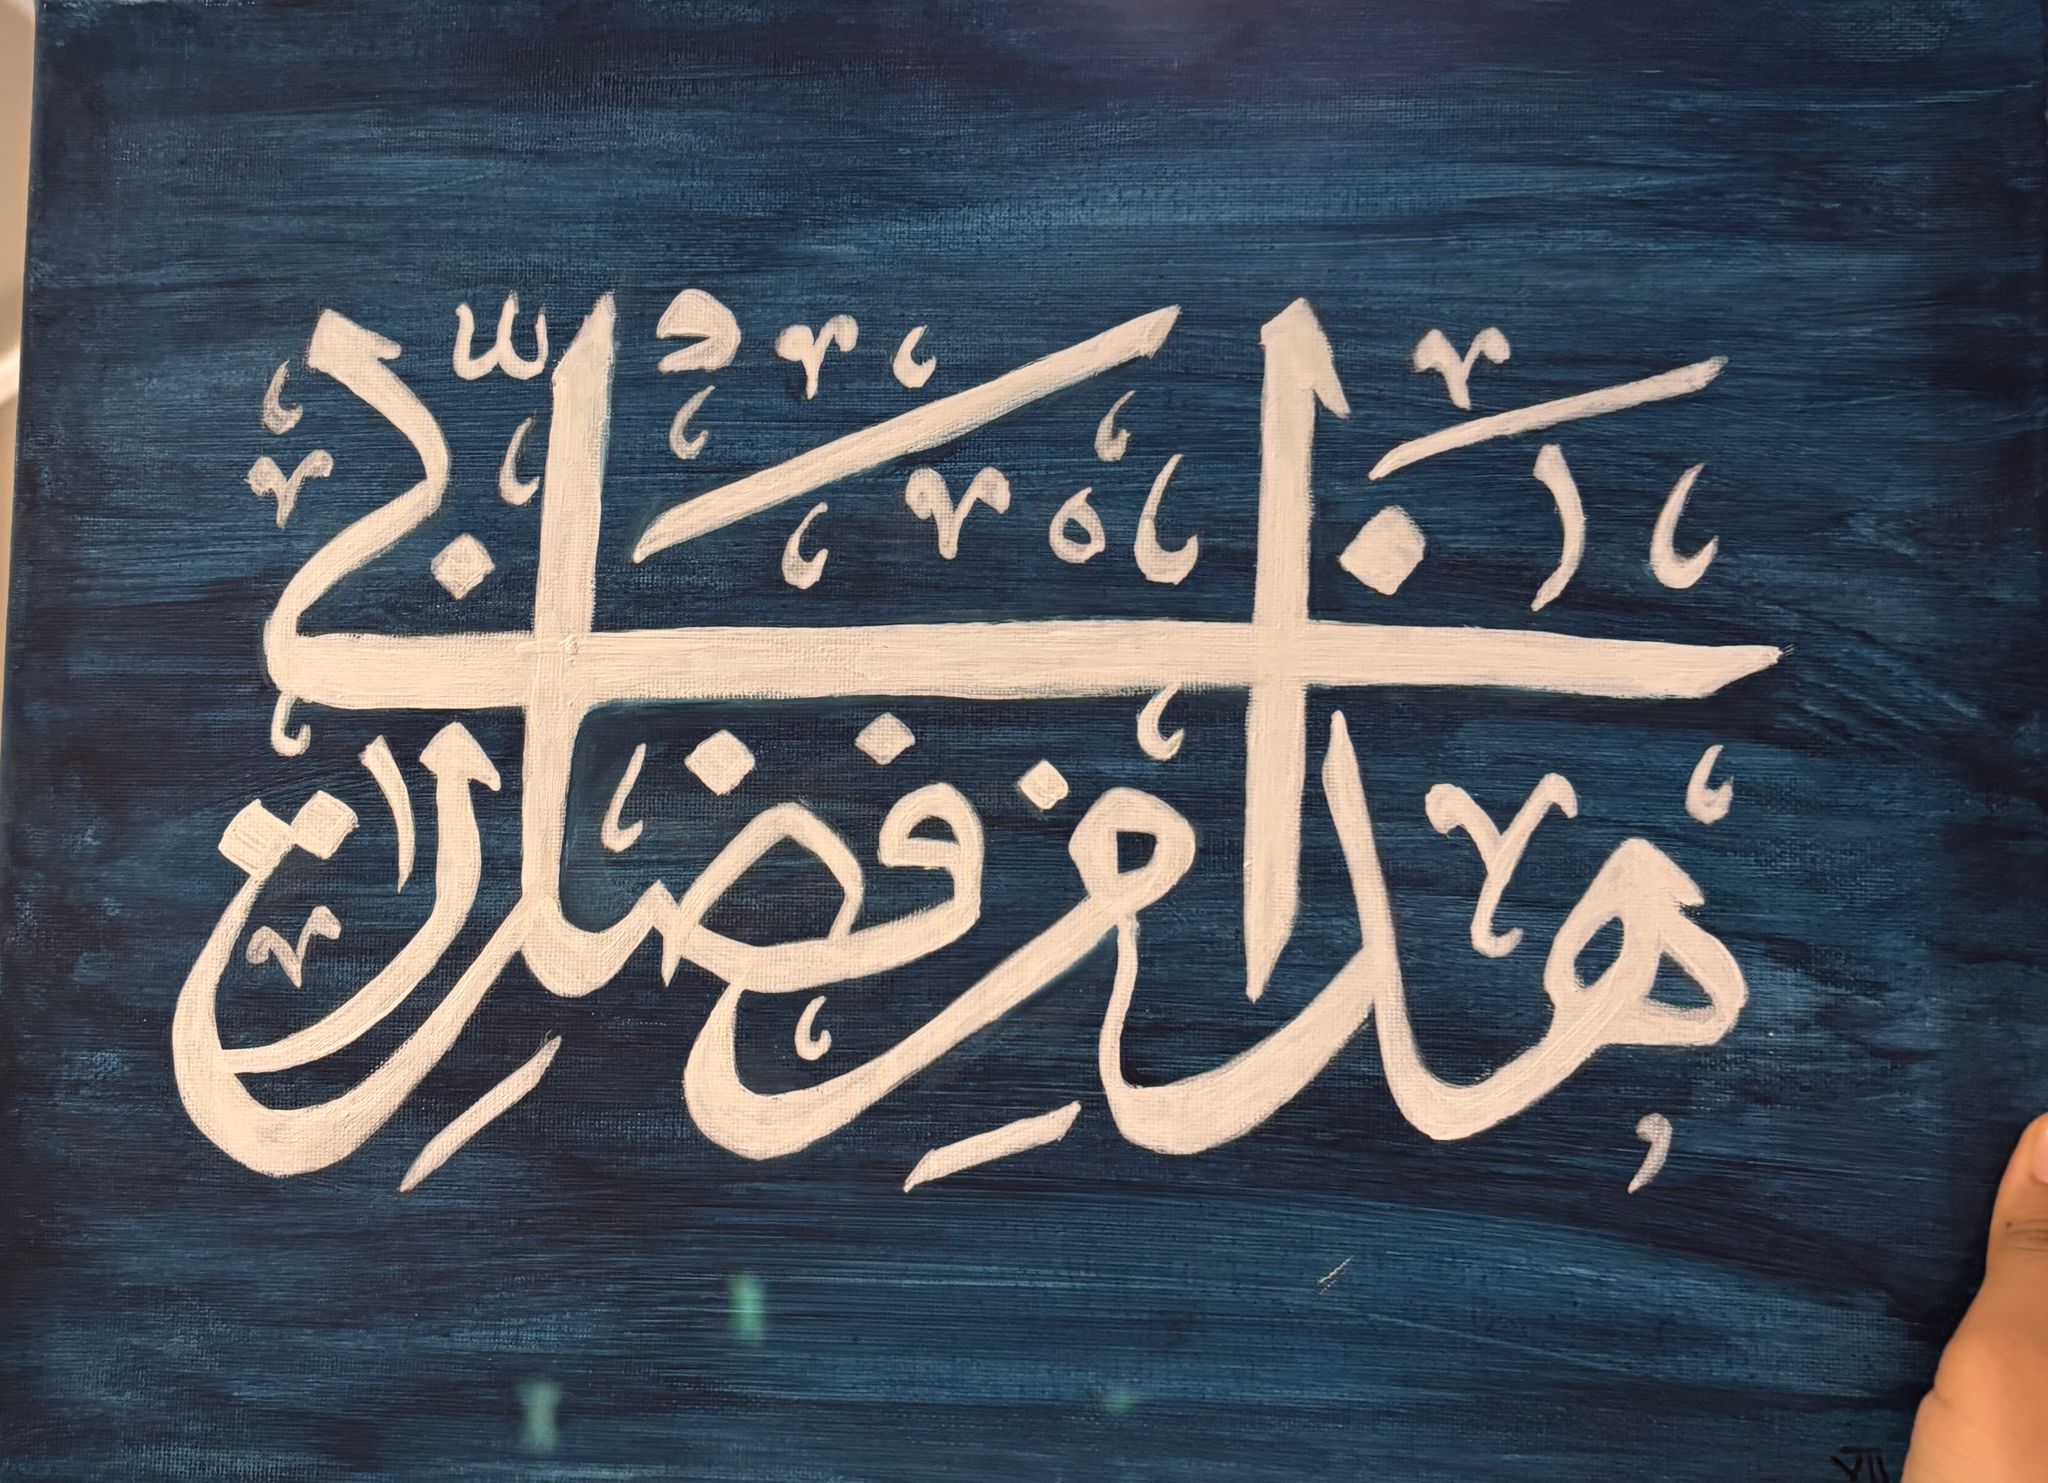 هٰذَا مِن فَضْلِ رَبِّي